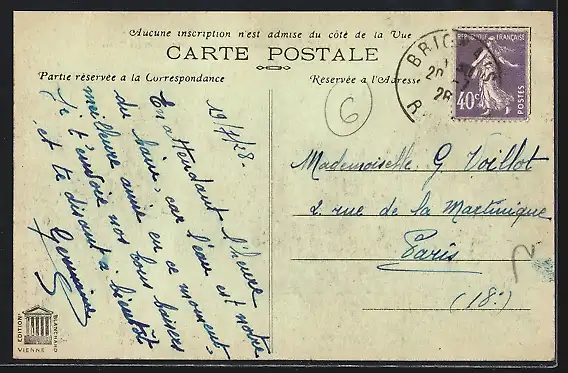 Aucune inscription n'est admise du côté de la Vue
CARTE POSTALE
Partie réservée à la Correspondance
Réservée à l'Adresse
19/7/28.
En attendant l'heure
du bain, car l'eau est notre
meilleure amie en ce moment,
je t'envoie nos bons baisers
et te disant à bientôt
Germaine
6
Mademoiselle G. Voillot
2 rue de la Martinique
Paris
(18e)
BRIGN
20
28
R
REPUBLIQUE FRANÇAISE
40c
POSTES
EDITION
BLANCHARD
VIENNE